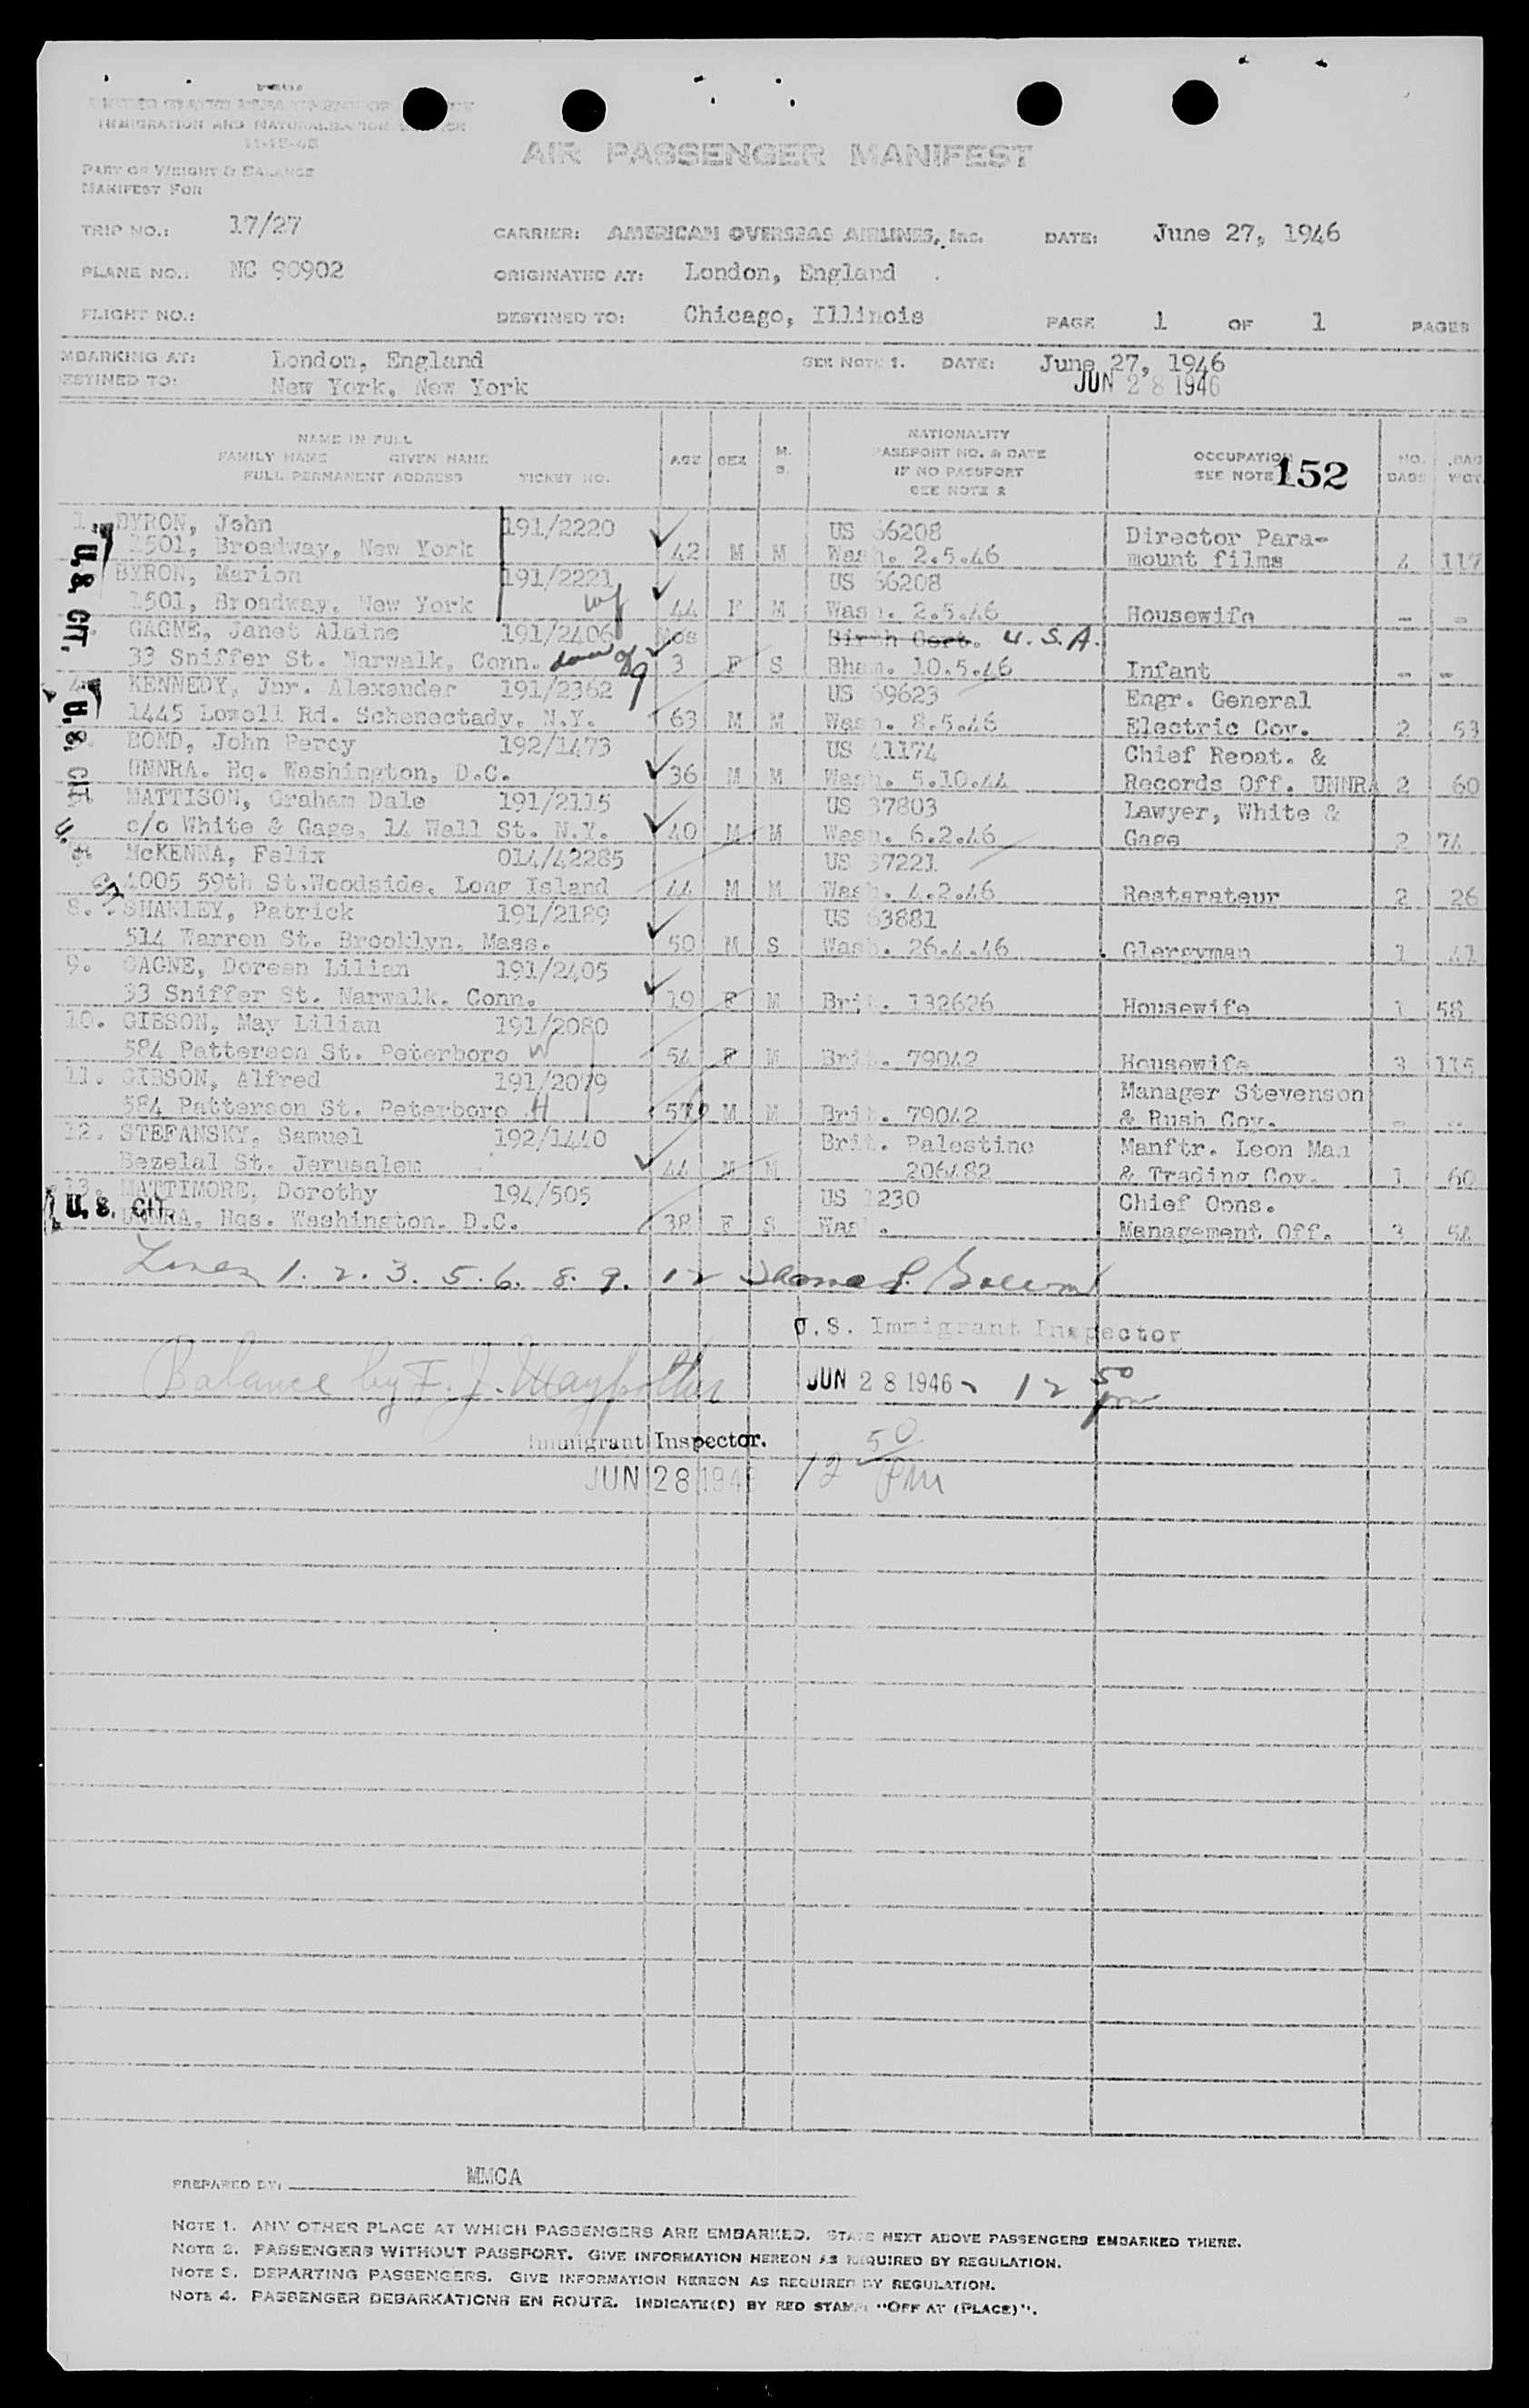 IMMIGRATION AND NATURALIZATION SERVICE
11-15-45
PART OF WEIGHT & BALANCE
MANIFEST FOR
AIR PASSENGER MANIFEST
TRIP NO.: 17/27 CARRIER: AMERICAN OVERSEAS AIRLINES, Inc. DATE: June 27, 1946
PLANE NO.: NC 90902 ORIGINATED AT: London, England
FLIGHT NO.: DESTINED TO: Chicago, Illinois PAGE 1 OF 1 PAGES
MBARKING AT: London, England SEE NOTE 1. DATE: June 27, 1946
ESTINED TO: New York, New York JUN 28 1946
NAME IN FULL
FAMILY NAME GIVEN NAME
FULL PERMANENT ADDRESS TICKET NO.
AGE SEX M. S.
NATIONALITY
PASSPORT NO. & DATE
IF NO PASSPORT
SEE NOTE 2
OCCUPATION
SEE NOTE 152
NO. BAGS BAG WGT.
1. BYRON, John 191/2220 US 66208 Director Para-
1501, Broadway, New York 42 M M Wash. 2.5.46 mount films 4 117
BYRON, Marion 191/2221 US 66208
1501, Broadway, New York wf 44 F M Wash. 2.5.46 Housewife - -
GAGNE, Janet Alaine 191/2406 Mos Birth Cert. U.S.A.
33 Sniffer St. Narwalk, Conn. dau of 9 3 F S Bham. 10.5.46 Infant - -
4. KENNEDY, Jnr. Alexander 191/2362 US 69623 Engr. General
1445 Lowell Rd. Schenectady, N.Y. 63 M M Wash. 8.5.46 Electric Coy. 2 53
BOND, John Percy 192/1473 US 41174 Chief Repat. &
UNNRA. Hq. Washington, D.C. 36 M M Wash. 5.10.44 Records Off. UNNRA 2 60
MATTISON, Graham Dale 191/2115 US 37803 Lawyer, White &
c/o White & Gage, 14 Wall St. N.Y. 40 M M Wash. 6.2.46 Gage 2 74
McKENNA, Felix 014/42285 US 37221
4005 59th St.Woodside, Long Island 44 M M Wash. 4.2.46 Restarateur 2 26
8. SHANLEY, Patrick 191/2189 US 63881
514 Warren St. Brooklyn, Mass. 50 M S Wash. 26.4.46 Glergyman 1 41
9. GAGNE, Doreen Lilian 191/2405
33 Sniffer St. Narwalk. Conn. 19 F M Brit. 132626 Housewife 1 58
10. GIBSON, May Lilian 191/2080
584 Patterson St. Peterboro W 54 F M Brit. 79042 Housewife 3 115
11. GIBSON, Alfred 191/2079 Manager Stevenson
584 Patterson St. Peterboro H 57 M M Brit. 79042 & Rush Coy. - -
12. STEFANSKY, Samuel 192/1440 Brit. Palestine Manftr. Leon Man
Bezelal St. Jerusalem 44 M M 206482 & Trading Coy. 1 60
13. MATTIMORE, Dorothy 194/505 US 1230 Chief Opns.
UNNRA, Hqs. Washington. D.C. 38 F S Wash. Management Off. 3 54
U. S. CIT.
U. S. CIT.
U. S. CIT
U. S. CIT.
Lines 1. 2. 3. 5. 6. 8. 9. 12
U.S. Immigrant Inspector
Balance by F. J. JUN 28 1946 12 50 pm
Immigrant Inspector.
JUN 28 194 12 50 PM
PREPARED BY: MMCA
NOTE 1. ANY OTHER PLACE AT WHICH PASSENGERS ARE EMBARKED. STATE NEXT ABOVE PASSENGERS EMBARKED THERE.
NOTE 2. PASSENGERS WITHOUT PASSPORT. GIVE INFORMATION HEREON AS REQUIRED BY REGULATION.
NOTE 3. DEPARTING PASSENGERS. GIVE INFORMATION HEREON AS REQUIRED BY REGULATION.
NOTE 4. PASSENGER DEBARKATIONS EN ROUTE. INDICATE(D) BY RED STAMP "OFF AT (PLACE)".